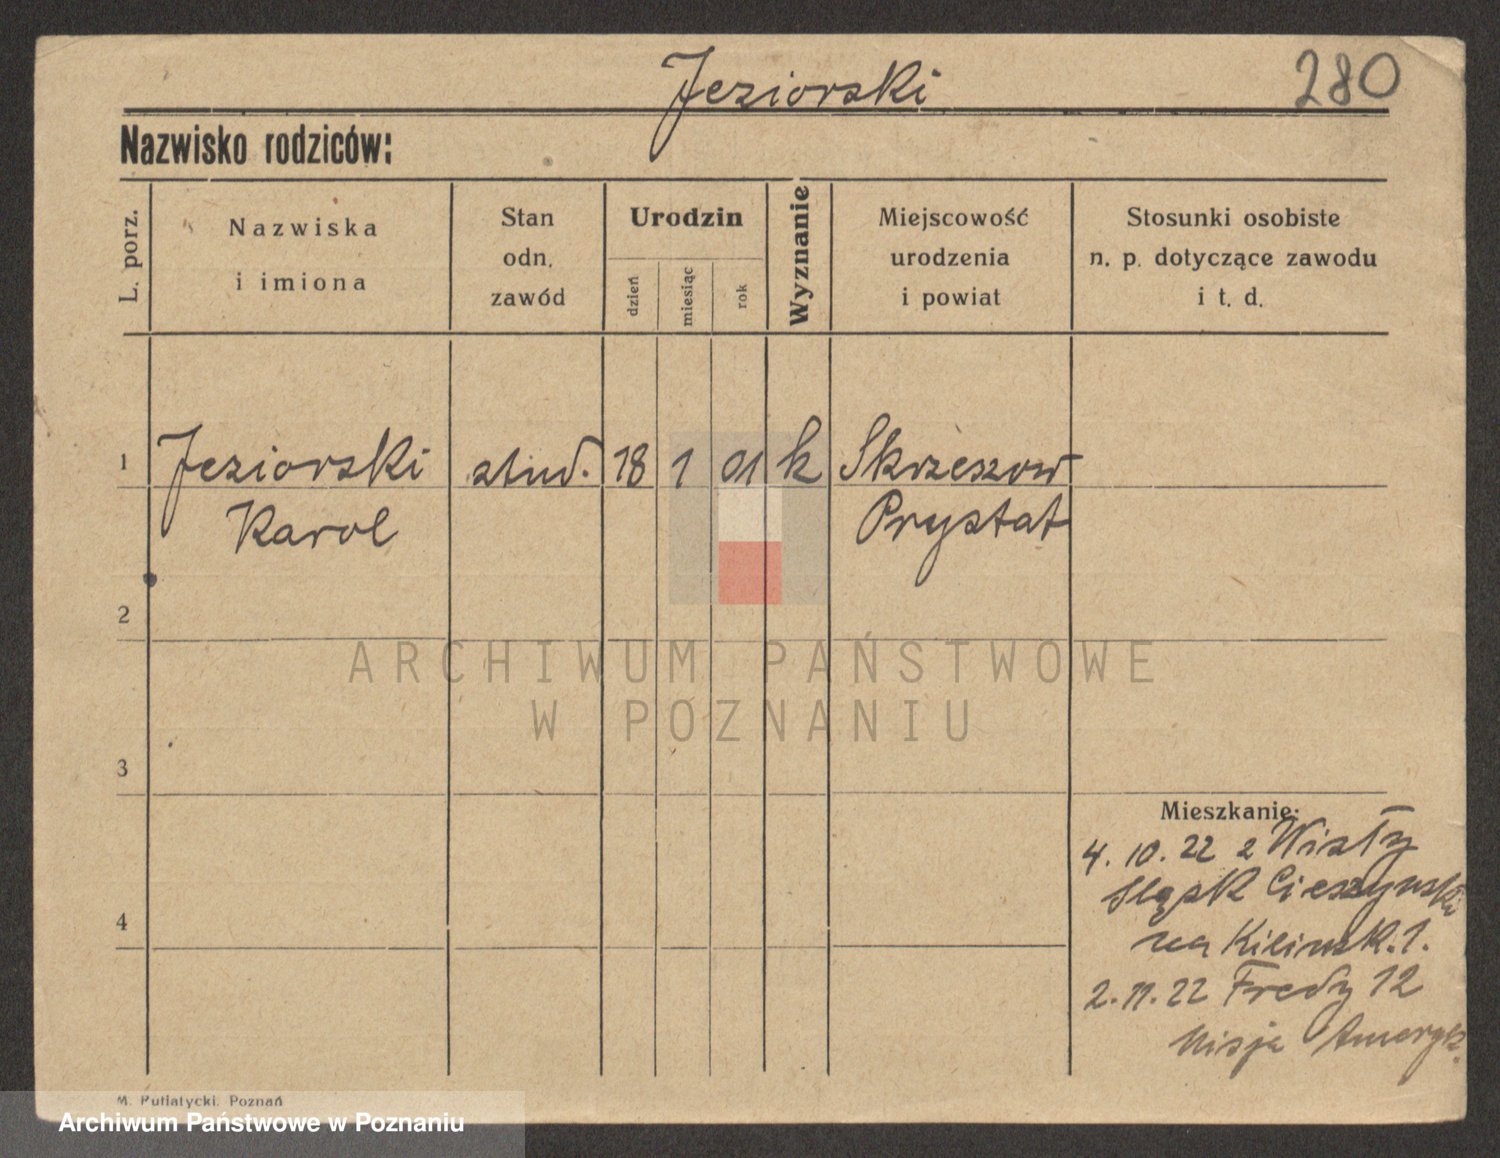 Jeziorski
280
Nazwisko rodziców:
L. porz.
Nazwiska
i imiona
Stan
odn.
zawód
Urodzin
dzień
miesiąc
rok
Wyznanie
Miejscowość
urodzenia
i powiat
Stosunki osobiste
n. p. dotyczące zawodu
i t. d.
1
Jeziorski stud. 18 1 01 k Skrzeszow
Karol Prystat
2
ARCHIWUM PAŃSTWOWE
W POZNANIU
3
Mieszkanie:
4. 10. 22 z Wisły
Śląsk Cieszyński
4
na Kilinsk. 1.
2. 11. 22 Fredry 12
Misja Ameryk.
M. Putiatycki. Poznań
Archiwum Państwowe w Poznaniu